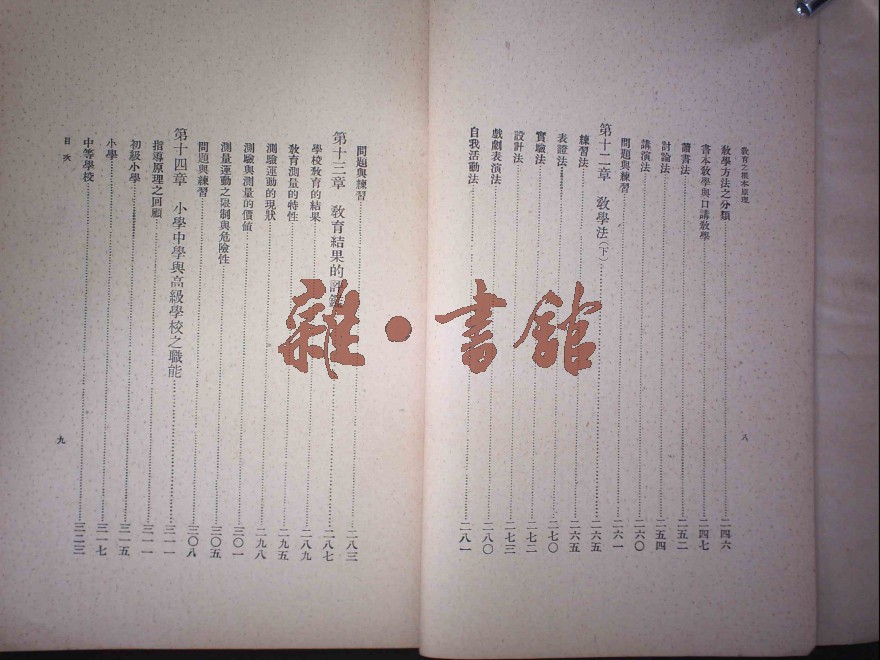 教育之根本原理
教學方法之分類……二四六
書本教學與口講教學……二四七
讀書法……二五二
討論法……二五四
講演法……二六〇
問題與練習……二六一
第十二章 教學法(下)……二六五
練習法……二六五
表證法……二七〇
實驗法……二七二
設計法……二七三
戲劇表演法……二八〇
自我活動法……二八一
八
問題與練習……二八三
第十三章 教育結果的評……二八七
學校教育的結果……二八九
教育測量的特性……二九五
測驗運動的現狀……二九八
測驗與測量的價値……三〇一
測量運動之限制與危險性……三〇五
問題與練習……三〇八
第十四章 小學中學與高級學校之職能……三一一
指導原理之回顧……三一一
初級小學……三一五
小學……三一七
中等學校……三二三
目次
九
雜·書館